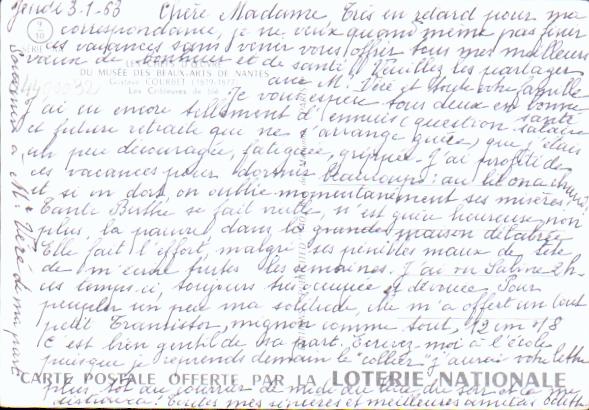 Jeudi 3-1-63 Chère Madame Très en retard pour ma
correspondance, je ne veux quand même pas finir
ces vacances sans venir vous offrir tous mes meilleurs
vœux de bonheur et de santé. Veuillez les partager
avec M. Véré et toute votre famille
Je vous espère tous deux en bonne santé
J'ai eu encore tellement d'ennuis (question salaire
et future retraite que ne s'arrange guère) que j'étais
un peu découragée, fatiguée, grippée - J'ai profité de
ces vacances pour dormir beaucoup : au lit on a chaud
et si on dort, on oublie momentanément ses misères.
Tante Berthe se fait vieille, n'est guère heureuse non
plus, la pauvre, dans la grande maison délabrée
Elle fait l'effort, malgré ses pénibles maux de tête
de m'écrire toutes les semaines. J'ai vu Sabine 2h
ces temps-ci, toujours très occupée et dévouée. Pour
peupler un peu ma solitude, elle m'a offert un tout
petit Transistor, mignon comme tout, 12 cm * 8
C'est bien gentil de sa part. Écrivez-moi à l'école
puisque je reprends demain le "collier" j'aurai votre lettre
plus tôt au courrier de midi
Toutes mes sincères et meilleures amitiés Edith
Souvenirs à Mr Véré de ma part
9
10
SÉRIE
DU MUSÉE DES BEAUX-ARTS DE NANTES
Gustave COURBET (1819-1877)
Les Cribleuses de blé
CARTE POSTALE OFFERTE PAR LA LOTERIE NATIONALE